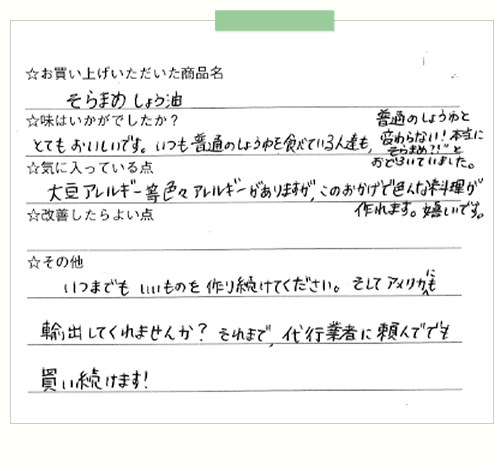 ☆お買い上げいただいた商品名
そらまめしょう油
☆味はいかがでしたか？
とてもおいしいです。いつも普通のしょうゆを食べている人達も、
普通のしょうゆと
変わらない！本当に
そらまめ？！"と
おどろいていました。
☆気に入っている点
大豆アレルギー等色々アレルギーがありますが、このおかげで色んな料理が
作れます。嬉しいです。
☆改善したらよい点
☆その他
いつまでも いいものを作り続けてください。そしてアメリカにも
輸出してくれませんか？それまで、代行業者に頼んででも
買い続けます！